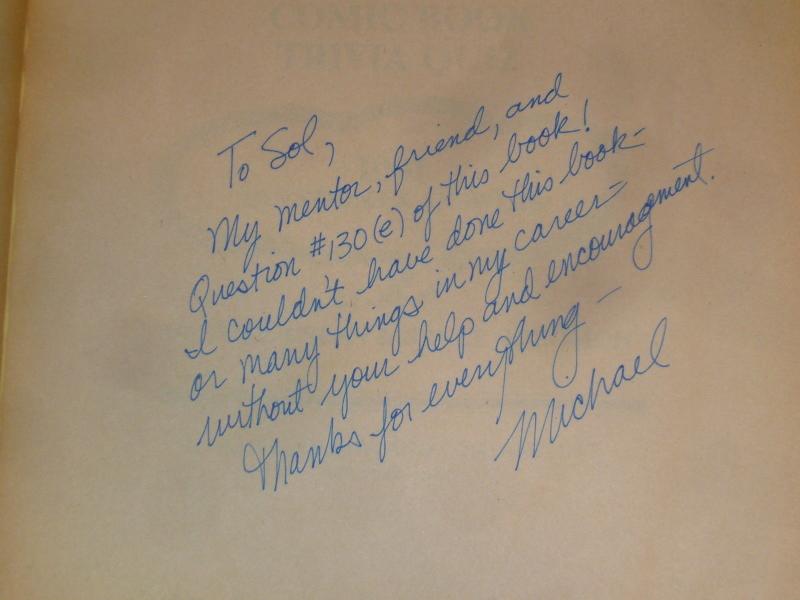 COMIC BOOK
TRIVIA QUIZ
To Sol,
My mentor, friend, and
Question #130(e) of this book!
I couldn't have done this book-
or many things in my career-
without your help and encouragement.
Thanks for everything -
Michael